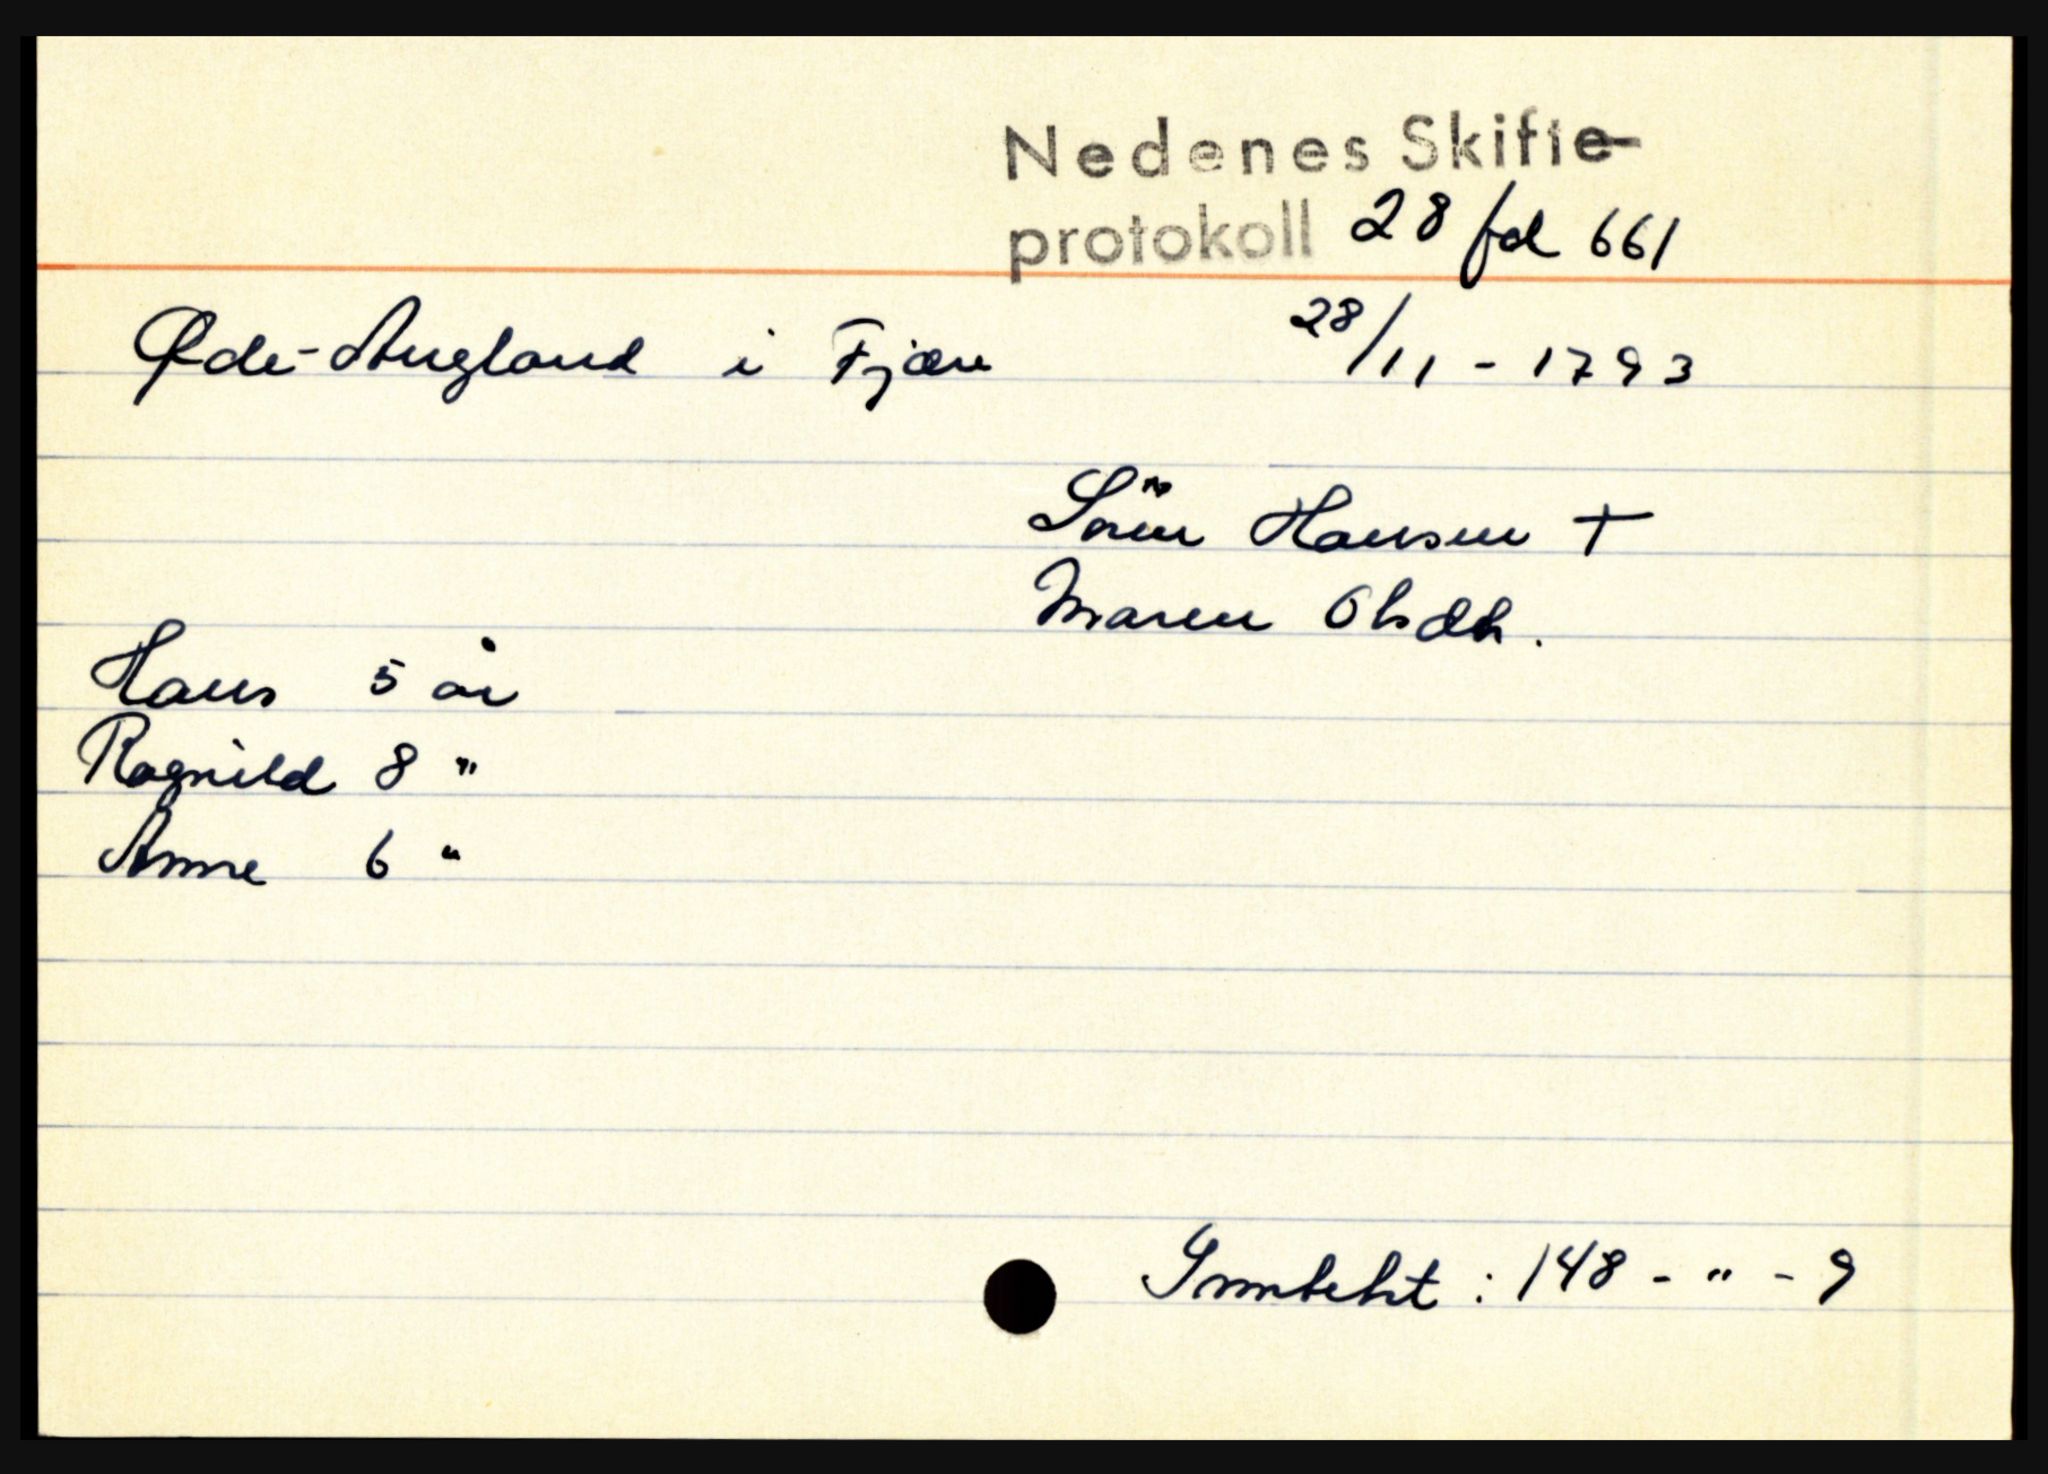 Nedenes Skifte-
protokoll 28 fol 661
Øde-Augland i Fjære 28/11 - 1793
Sören Hansen +
Maren Olsdtr.
Hans 5 år
Ragnild 8 "
Anne 6 "
: 148 - " - 9